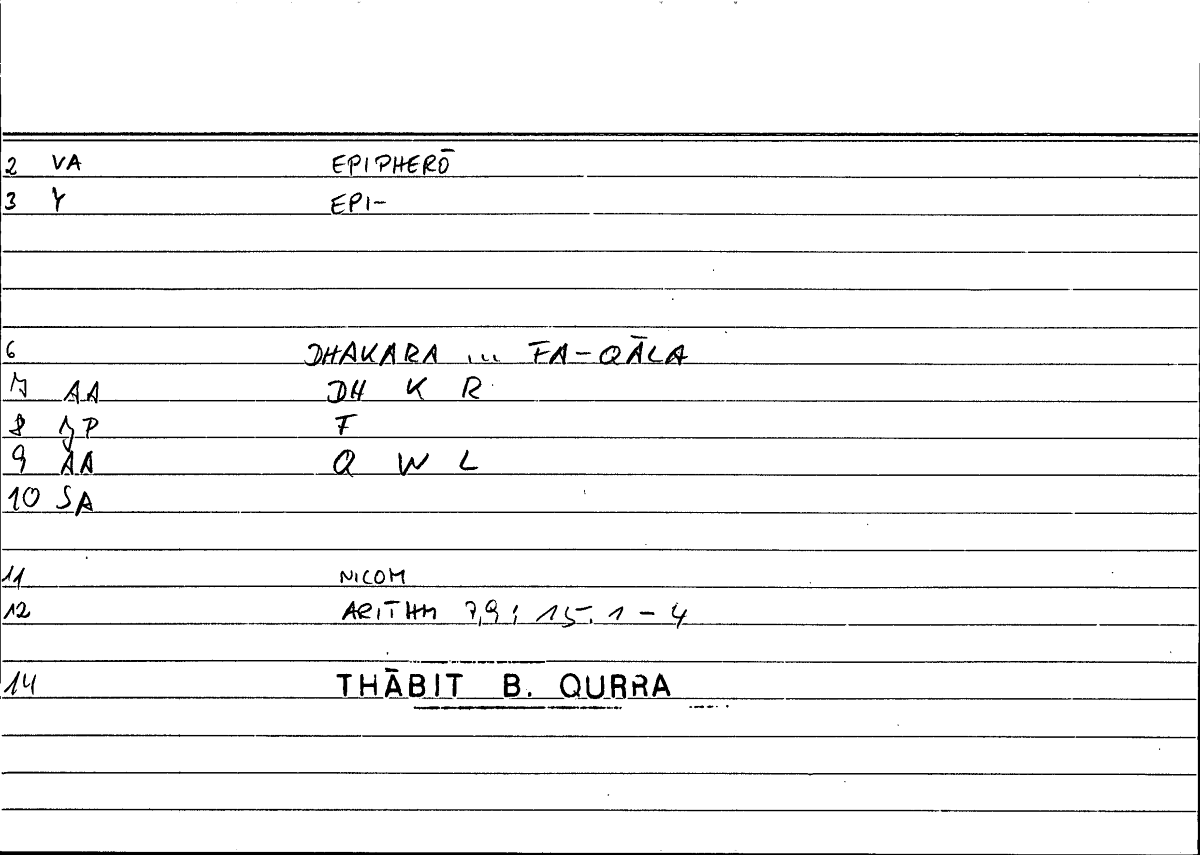 2 VA EPIPHERŌ
3 Y EPI-
6 DHAKARA ... FA-QĀLA
7 AA DH K R
8 P F
9 AA Q W L
10 SA
11 NICOM
12 ARITHM 7,9; 15.1-4
14 THĀBIT B. QURRA